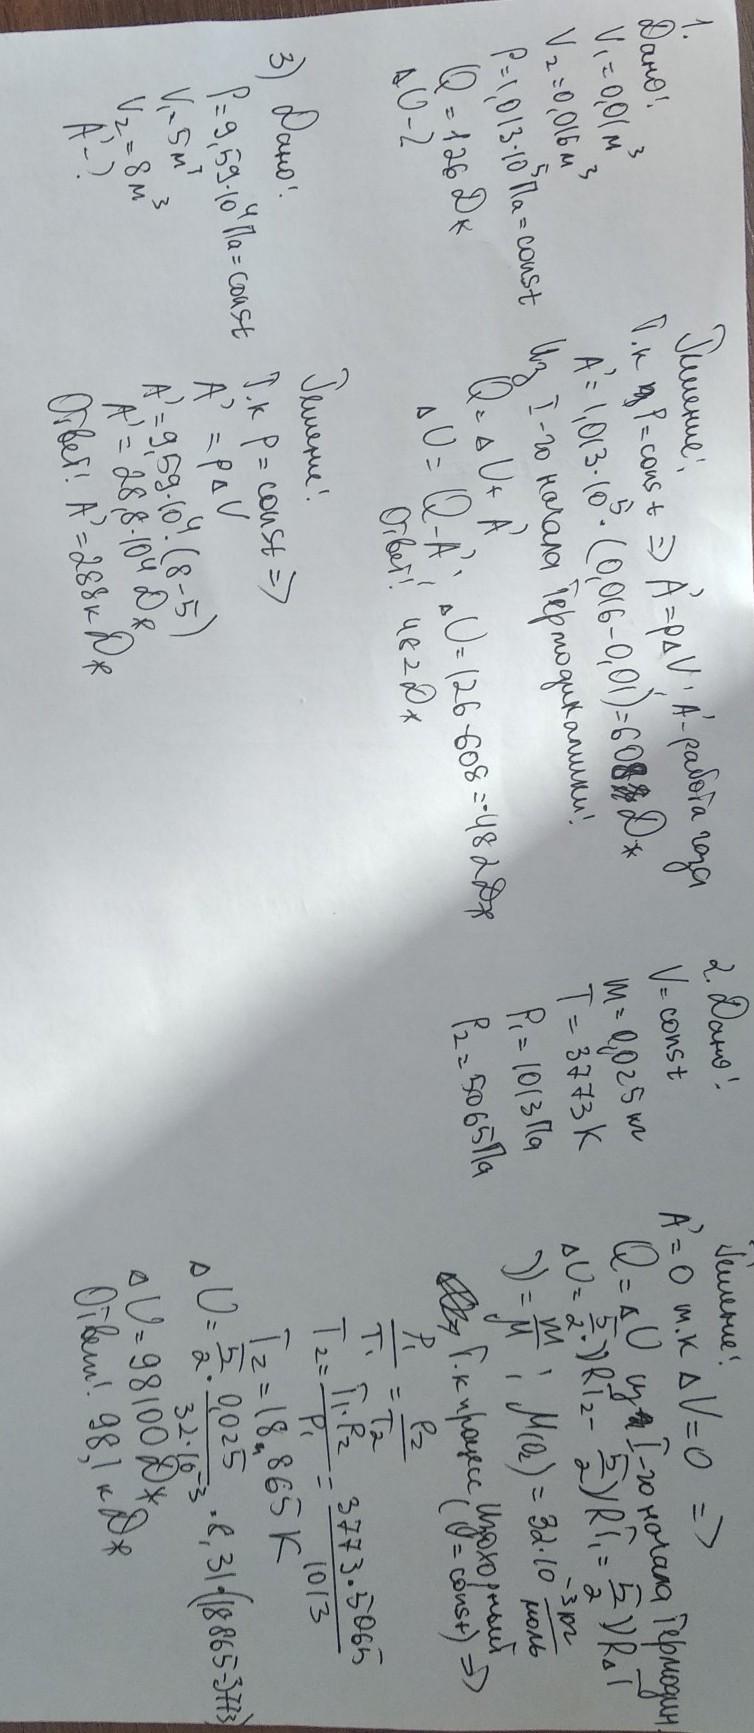 1.
Дано!
V₁=0,01м³
V₂=0,016м³
P=1,013·10⁵Па=const
Q=126Дж
ΔU-?
Решение!
Т.к P=const => A'=pΔV; A'-работа газа
A'=1,013·10⁵·(0,016-0,01)=608Дж
Из I-го начала термодинамики!
Q=ΔU+A'
ΔU=Q-A'; ΔU=126-608=-482Дж
Ответ! 482Дж
3) Дано!
P=9,59·10⁴Па=const
V₁=5м³
V₂=8м³
A'-?
Решение!
Т.к P=const =>
A'=pΔV
A'=9,59·10⁴·(8-5)
A'=28,8·10⁴Дж
Ответ! A'=288кДж
2. Дано!
V=const
m=0,025кг
T=3773K
P₁=1013Па
P₂=5065Па
Решение!
A'=0 т.к ΔV=0 =>
Q=ΔU из I-го начала термодин
ΔU=5/2·νRT₂-5/2νRT₁=5/2νRΔT
ν=m/M; M(O₂)=32·10⁻³кг/моль
Т.к процесс изохорный (V=const) =>
P₁/T₁=P₂/T₂
T₂=T₁·P₂/P₁=3773·5065/1013
T₂=18,865K
ΔU=5/2·0,025/32·10⁻³·8,31·(18865-3773)
ΔU=98100Дж
Ответ! 98,1кДж